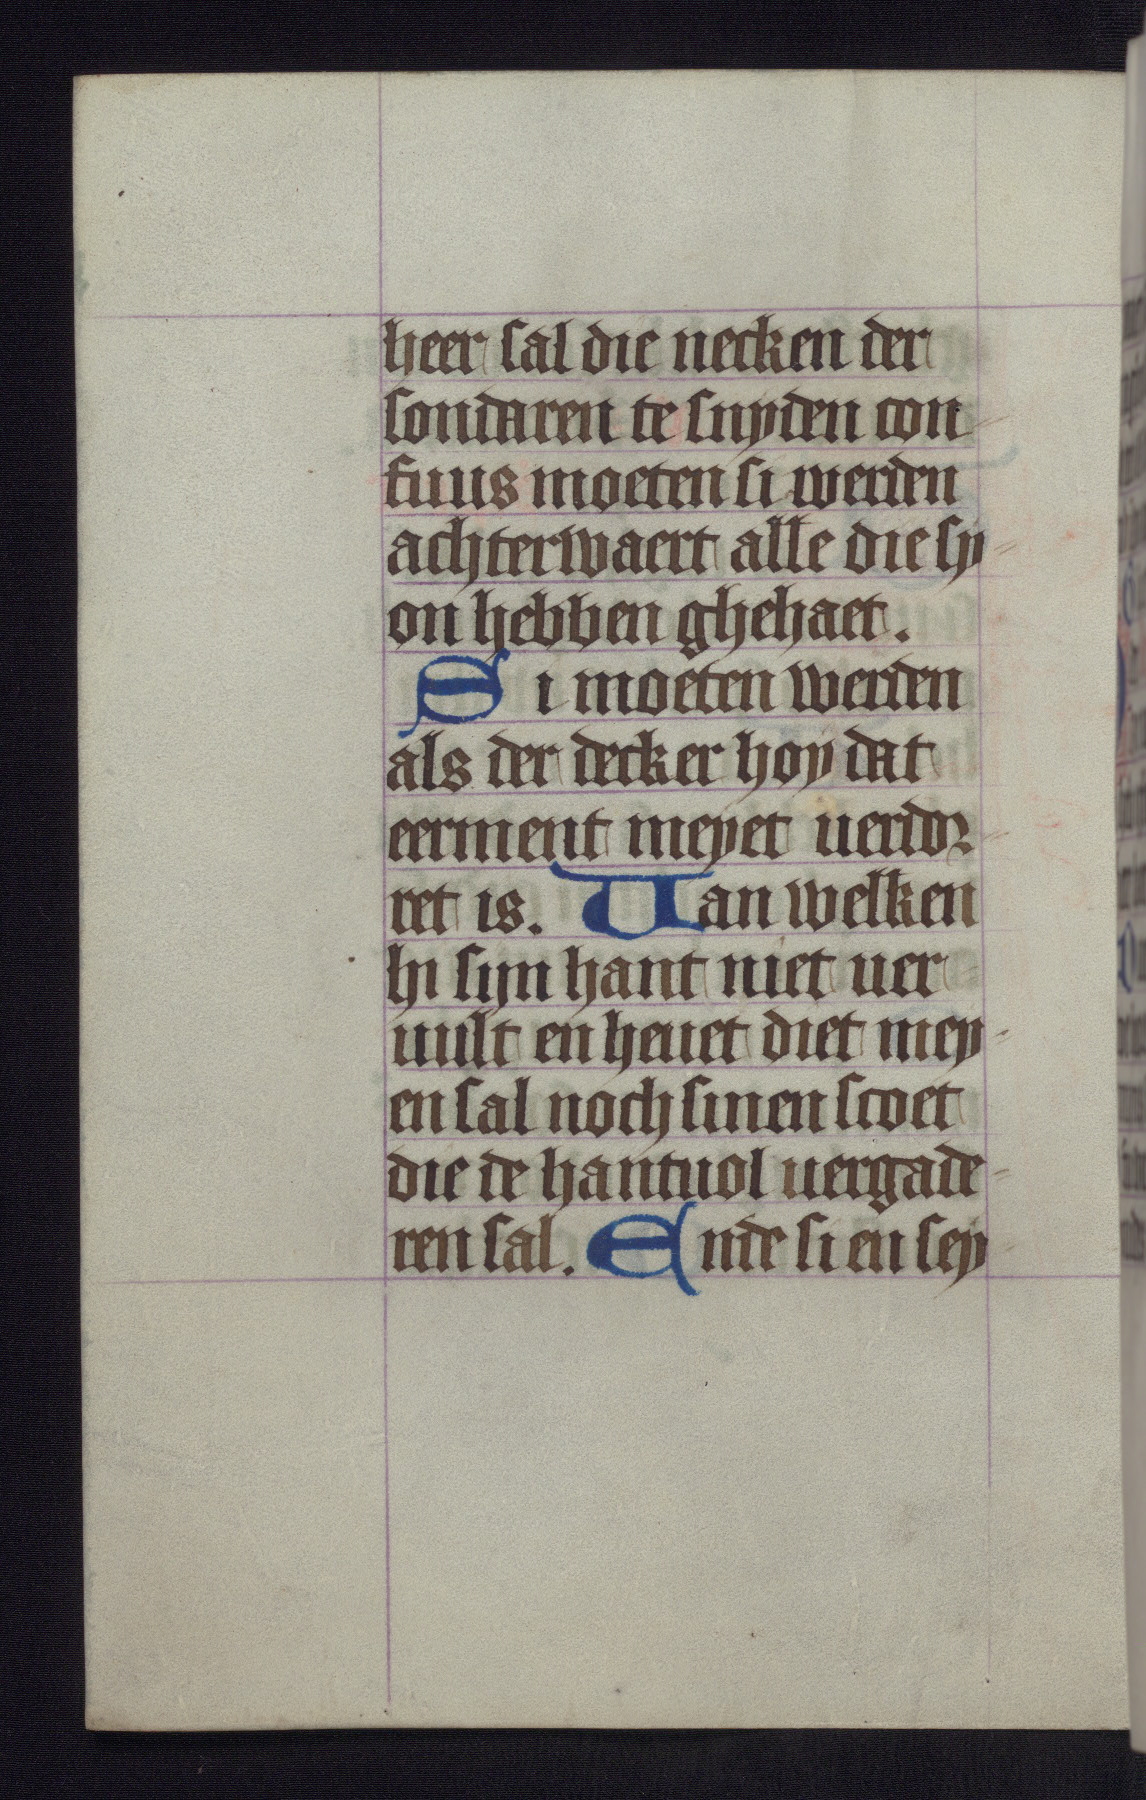 heer sal die necken der
sondaren te snyden con
fuus moeten si werden
achterwaert alle die sy
on hebben ghehaet.
Si moeten werden
als der decker hoy dat
eerment meyet uerdor
ret is. Uan welken
hi sijn hant niet uer
uult en heuet diet mey
en sal noch sinen scoet
die de hantuol uergade
ren sal. Ende si en sey